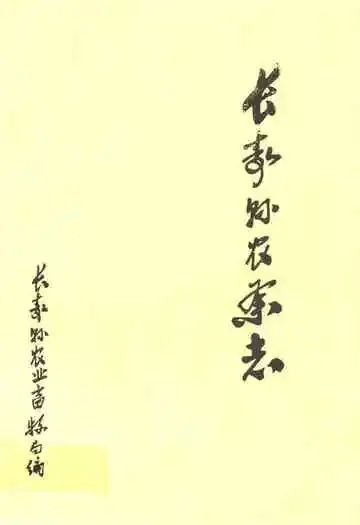 长寿县农業志
长寿县农业畜牧局编